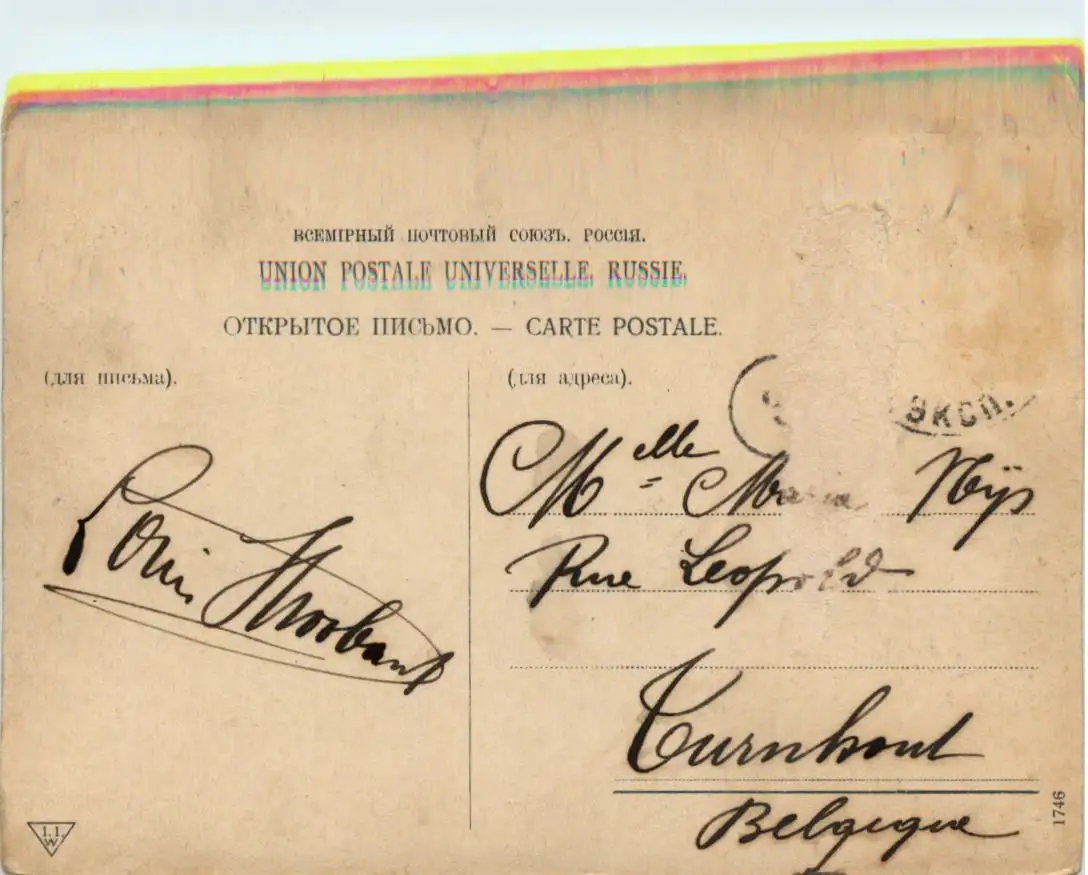 ВСЕМІРНЫЙ ПОЧТОВЫЙ СОЮЗЪ. РОССІЯ.
UNION POSTALE UNIVERSELLE. RUSSIE.
ОТКРЫТОЕ ПИСЬМО. — CARTE POSTALE.
(для письма).
(для адреса).
ЭКСП.
Melle Maria Nÿs
Rue Leopold
Louis Stroobant
Turnhout
Belgique
1746
I. I.
W.